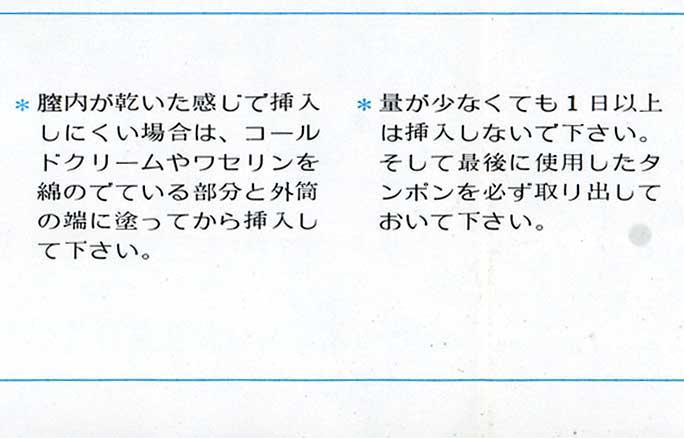 ＊膣内が乾いた感じで挿入
しにくい場合は、コール
ドクリームやワセリンを
綿のでている部分と外筒
の端に塗ってから挿入し
て下さい。
＊量が少なくても１日以上
は挿入しないで下さい。
そして最後に使用したタ
ンポンを必ず取り出して
おいて下さい。